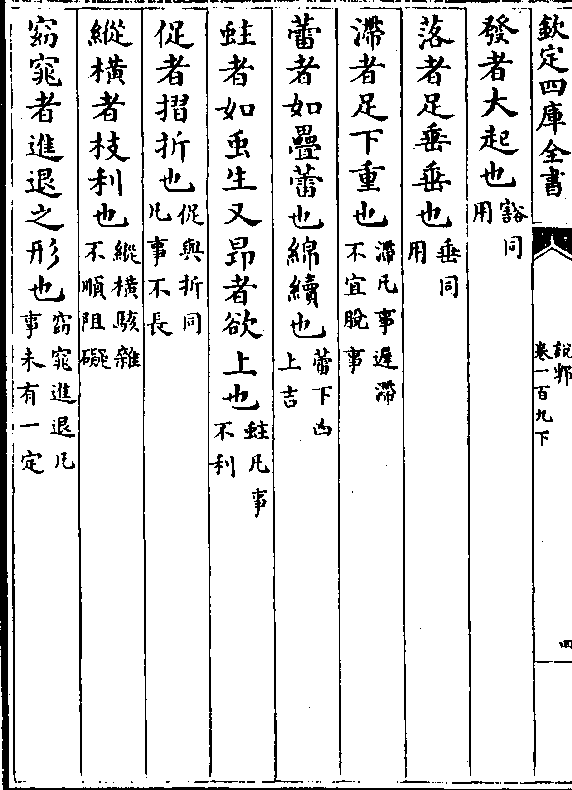 欽定四庫全書
說郛
卷一百九下
四
發者大起也豁同用
落者足垂垂也垂同用
滯者足下重也滯凡事遲滯不宜脫事
蕾者如疊蕾也綿續也蕾下凶上吉
蛀者如䖝生又昻者欲上也蛀凡事不利
促者摺折也促與折同凡事不長
縱橫者枝利也縱橫駁雜不順阻礙
窈窕者進退之形也窈窕進退凡事未有一定